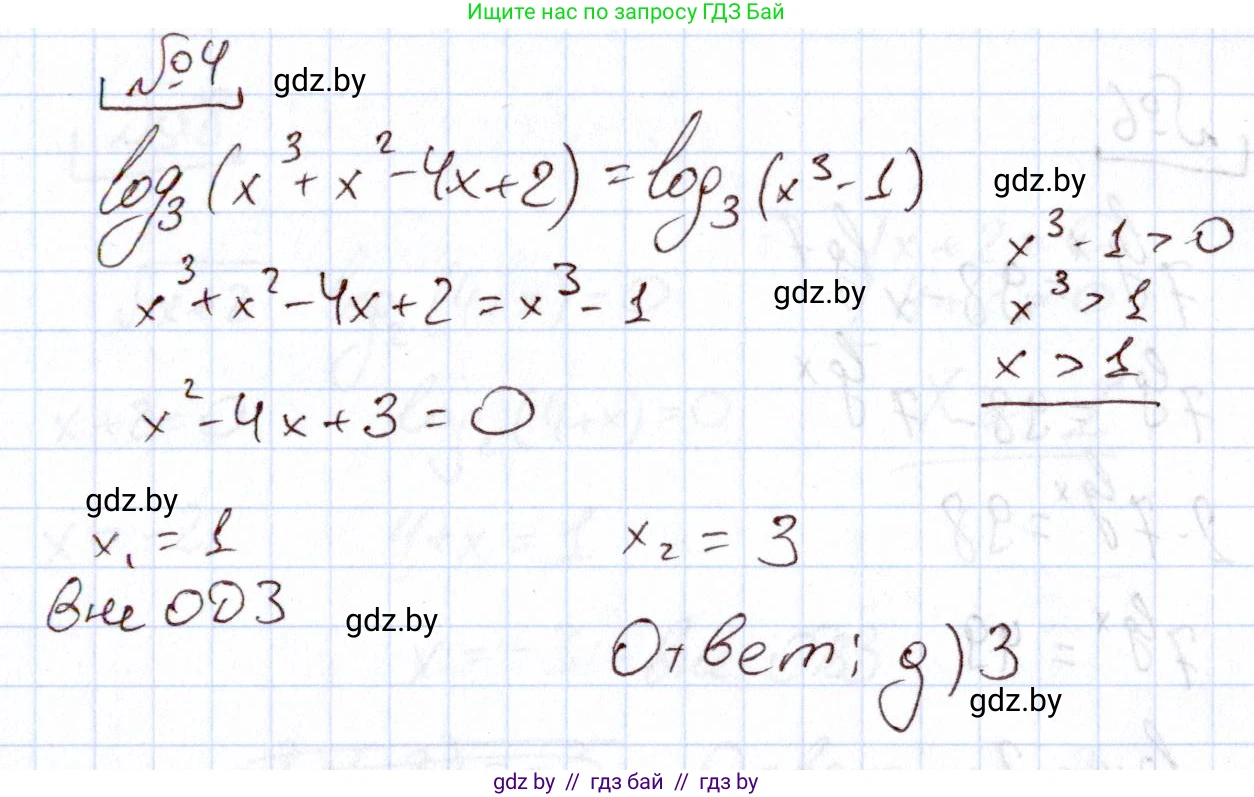 Ищите нас по запросу ГДЗ Бай
№4
gdz.by
log₃(x³+x²-4x+2) = log₃(x³-1)
gdz.by
x³-1>0
x³+x²-4x+2=x³-1
gdz.by
x³>1
x>1
x²-4x+3=0
gdz.by
x₁=1
x₂=3
вне ОДЗ
gdz.by
Ответ: д)3
gdz.by
gdz.by // гдз бай // гдз by